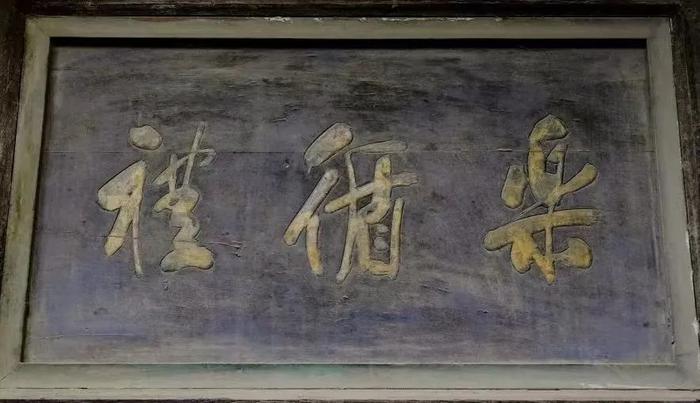 樂循禮